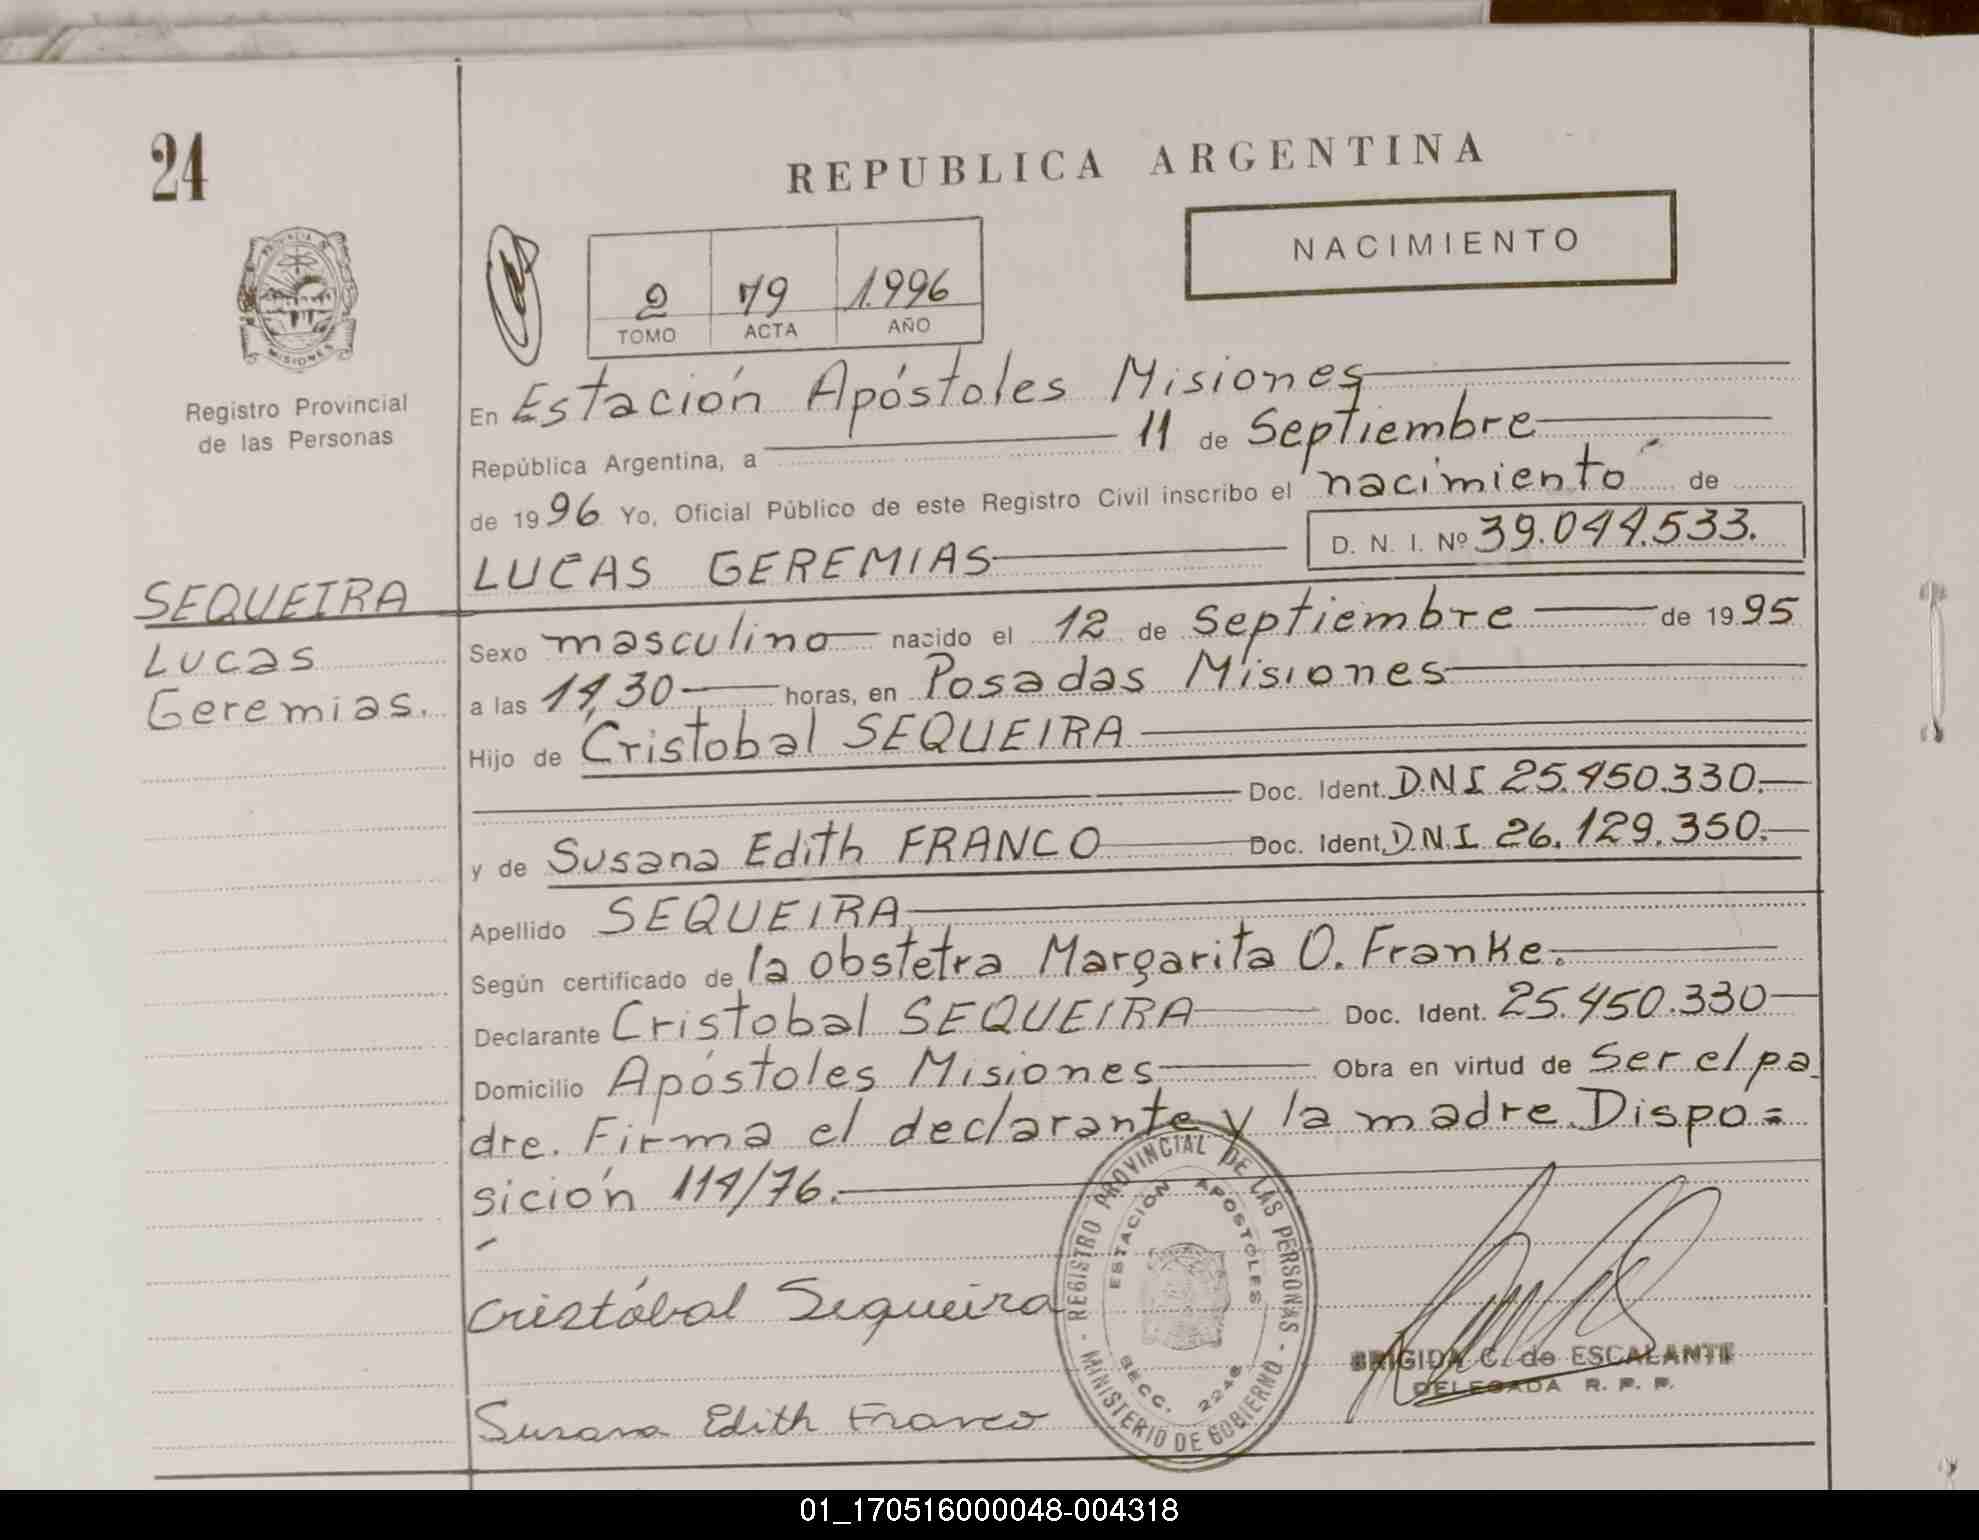 24
REPUBLICA ARGENTINA
NACIMIENTO
2 79 1.996
TOMO ACTA AÑO
PROVINCIA DE MISIONES
Registro Provincial
de las Personas
En Estación Apóstoles Misiones
República Argentina, a 11 de Septiembre
de 1996 Yo, Oficial Público de este Registro Civil inscribo el nacimiento de
LUCAS GEREMIAS D. N. I. Nº 39.044.533.
SEQUEIRA
Lucas
Geremias.
Sexo masculino nacido el 12 de Septiembre de 1995
a las 14,30 horas, en Posadas Misiones
Hijo de Cristobal SEQUEIRA
Doc. Ident. D.N.I 25.450.330.
y de Susana Edith FRANCO Doc. Ident. D.N.I. 26.129.350.
Apellido SEQUEIRA
Según certificado de la obstetra Margarita O. Franke.
Declarante Cristobal SEQUEIRA Doc. Ident. 25.450.330
Domicilio Apóstoles Misiones Obra en virtud de Ser el pa
dre. Firma el declarante y la madre. Dispo=
sición 114/76.
Cristóbal Sequeira
Susana Edith Franco
REGISTRO PROVINCIAL DE LAS PERSONAS - MINISTERIO DE GOBIERNO -
ESTACIÓN APOSTOLES
SECC. 2248
BRIGIDA C. de ESCALANTE
DELEGADA R. P. P.
01_170516000048-004318